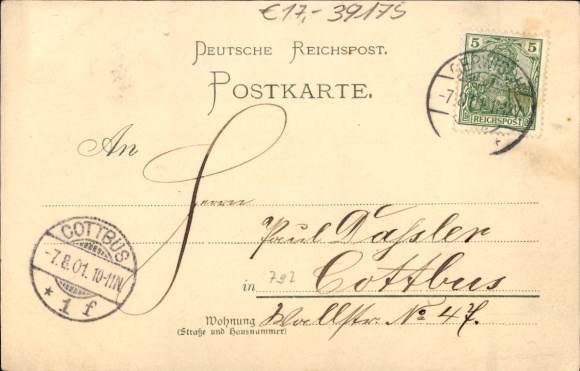 €17,- 39175
DEUTSCHE REICHSPOST.
POSTKARTE.
5 5
REICHSPOST
An
Herrn
Paul Dassler
792
in Cottbus
Wohnung Wallstr. No 47.
(Straße und Hausnummer)
COTTBUS
-7.8.01. 10-11N.
* 1 f